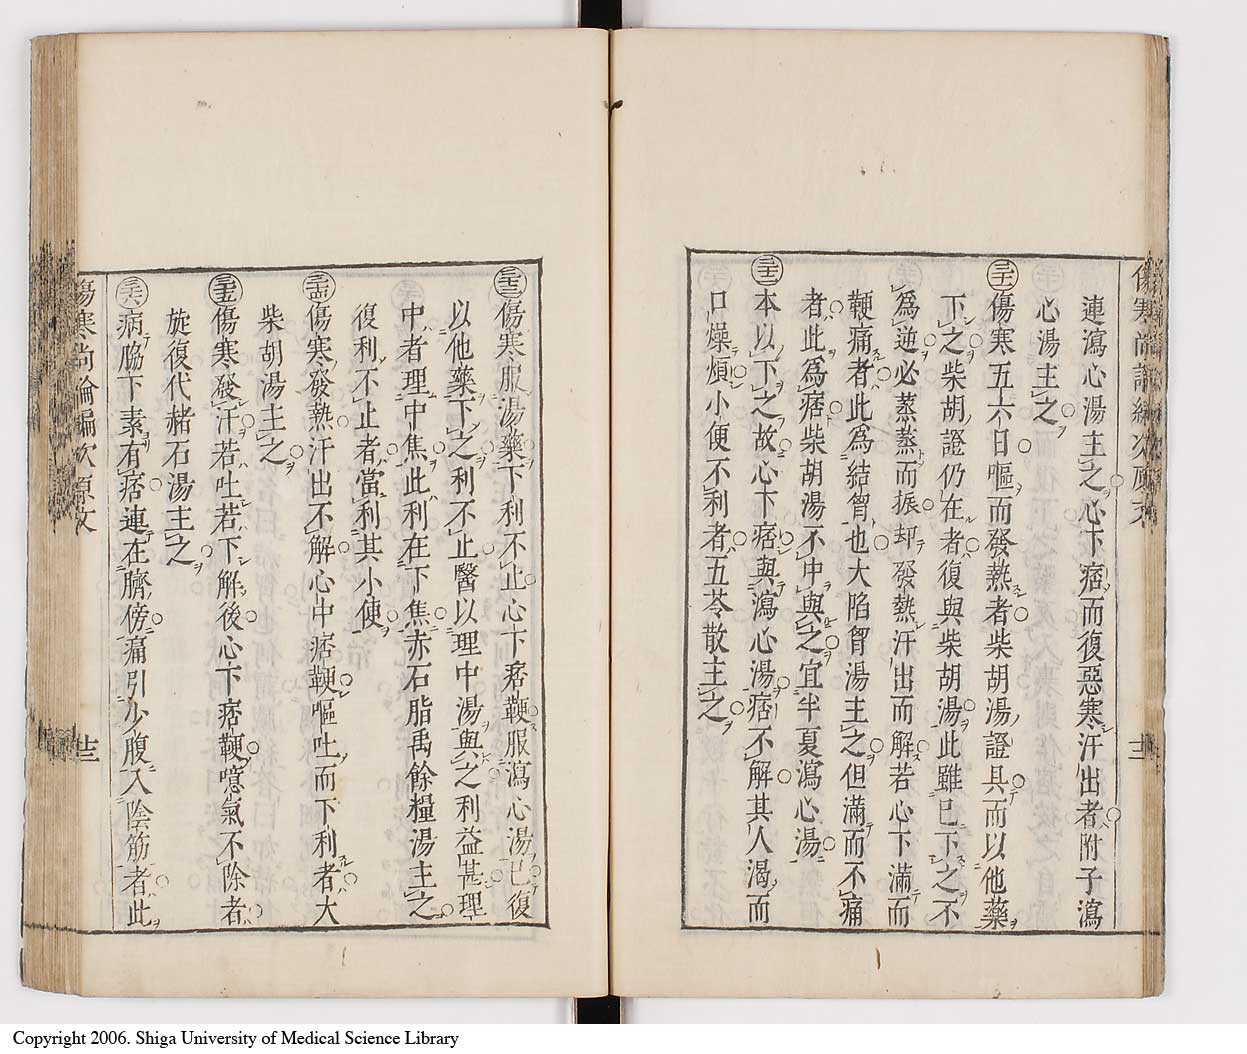 連瀉心湯主之心下痞而復惡寒汗出者附子瀉
心湯主之
傷寒五六日嘔而發熱者柴胡湯證具而以他藥
下之柴胡證仍在者復與柴胡湯此雖已下之不
爲逆必蒸蒸而振却發熱汗出而解若心下滿而
鞕痛者此爲結胷也大陷胷湯主之但滿而不痛
者此爲痞柴胡湯不中與之宜半夏瀉心湯
本以下之故心下痞與瀉心湯痞不解其人渴而
口燥煩小便不利者五苓散主之
傷寒服湯藥下利不止心下痞鞕服瀉心湯已復
以他藥下之利不止醫以理中湯與之利益甚理
中者理中焦此利在下焦赤石脂禹餘糧湯主之
復利不止者當利其小便
傷寒發熱汗出不解心中痞鞕嘔吐而下利者大
柴胡湯主之
傷寒發汗若吐若下解後心下痞鞕噫氣不除者
旋復代赭石湯主之
病脇下素有痞連在臍傍痛引少腹入陰筋者此
傷寒尚論編次原文
Copyright 2006. Shiga University of Medical Science Library